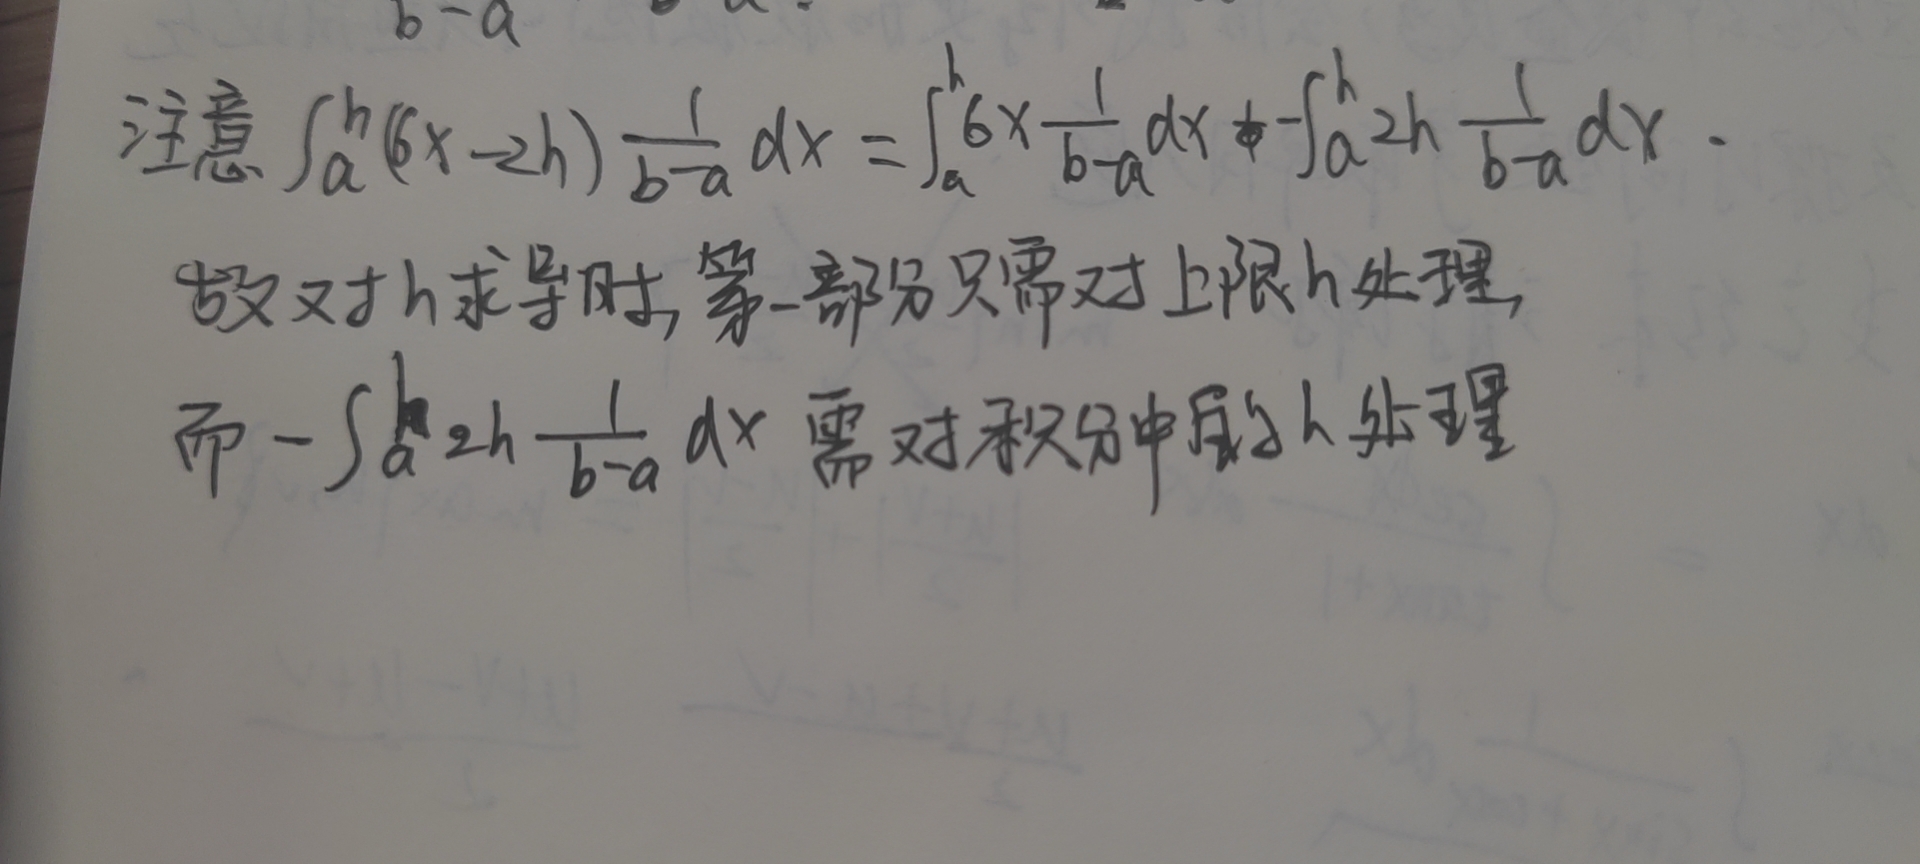 b-a
注意 ∫_a^h (6x-2h) \frac{1}{b-a} dx = ∫_a^h 6x \frac{1}{b-a} dx - ∫_a^h 2h \frac{1}{b-a} dx .
故对h求导时, 第一部分只需对上限h处理,
而 - ∫_a^h 2h \frac{1}{b-a} dx 需对积分中的h处理